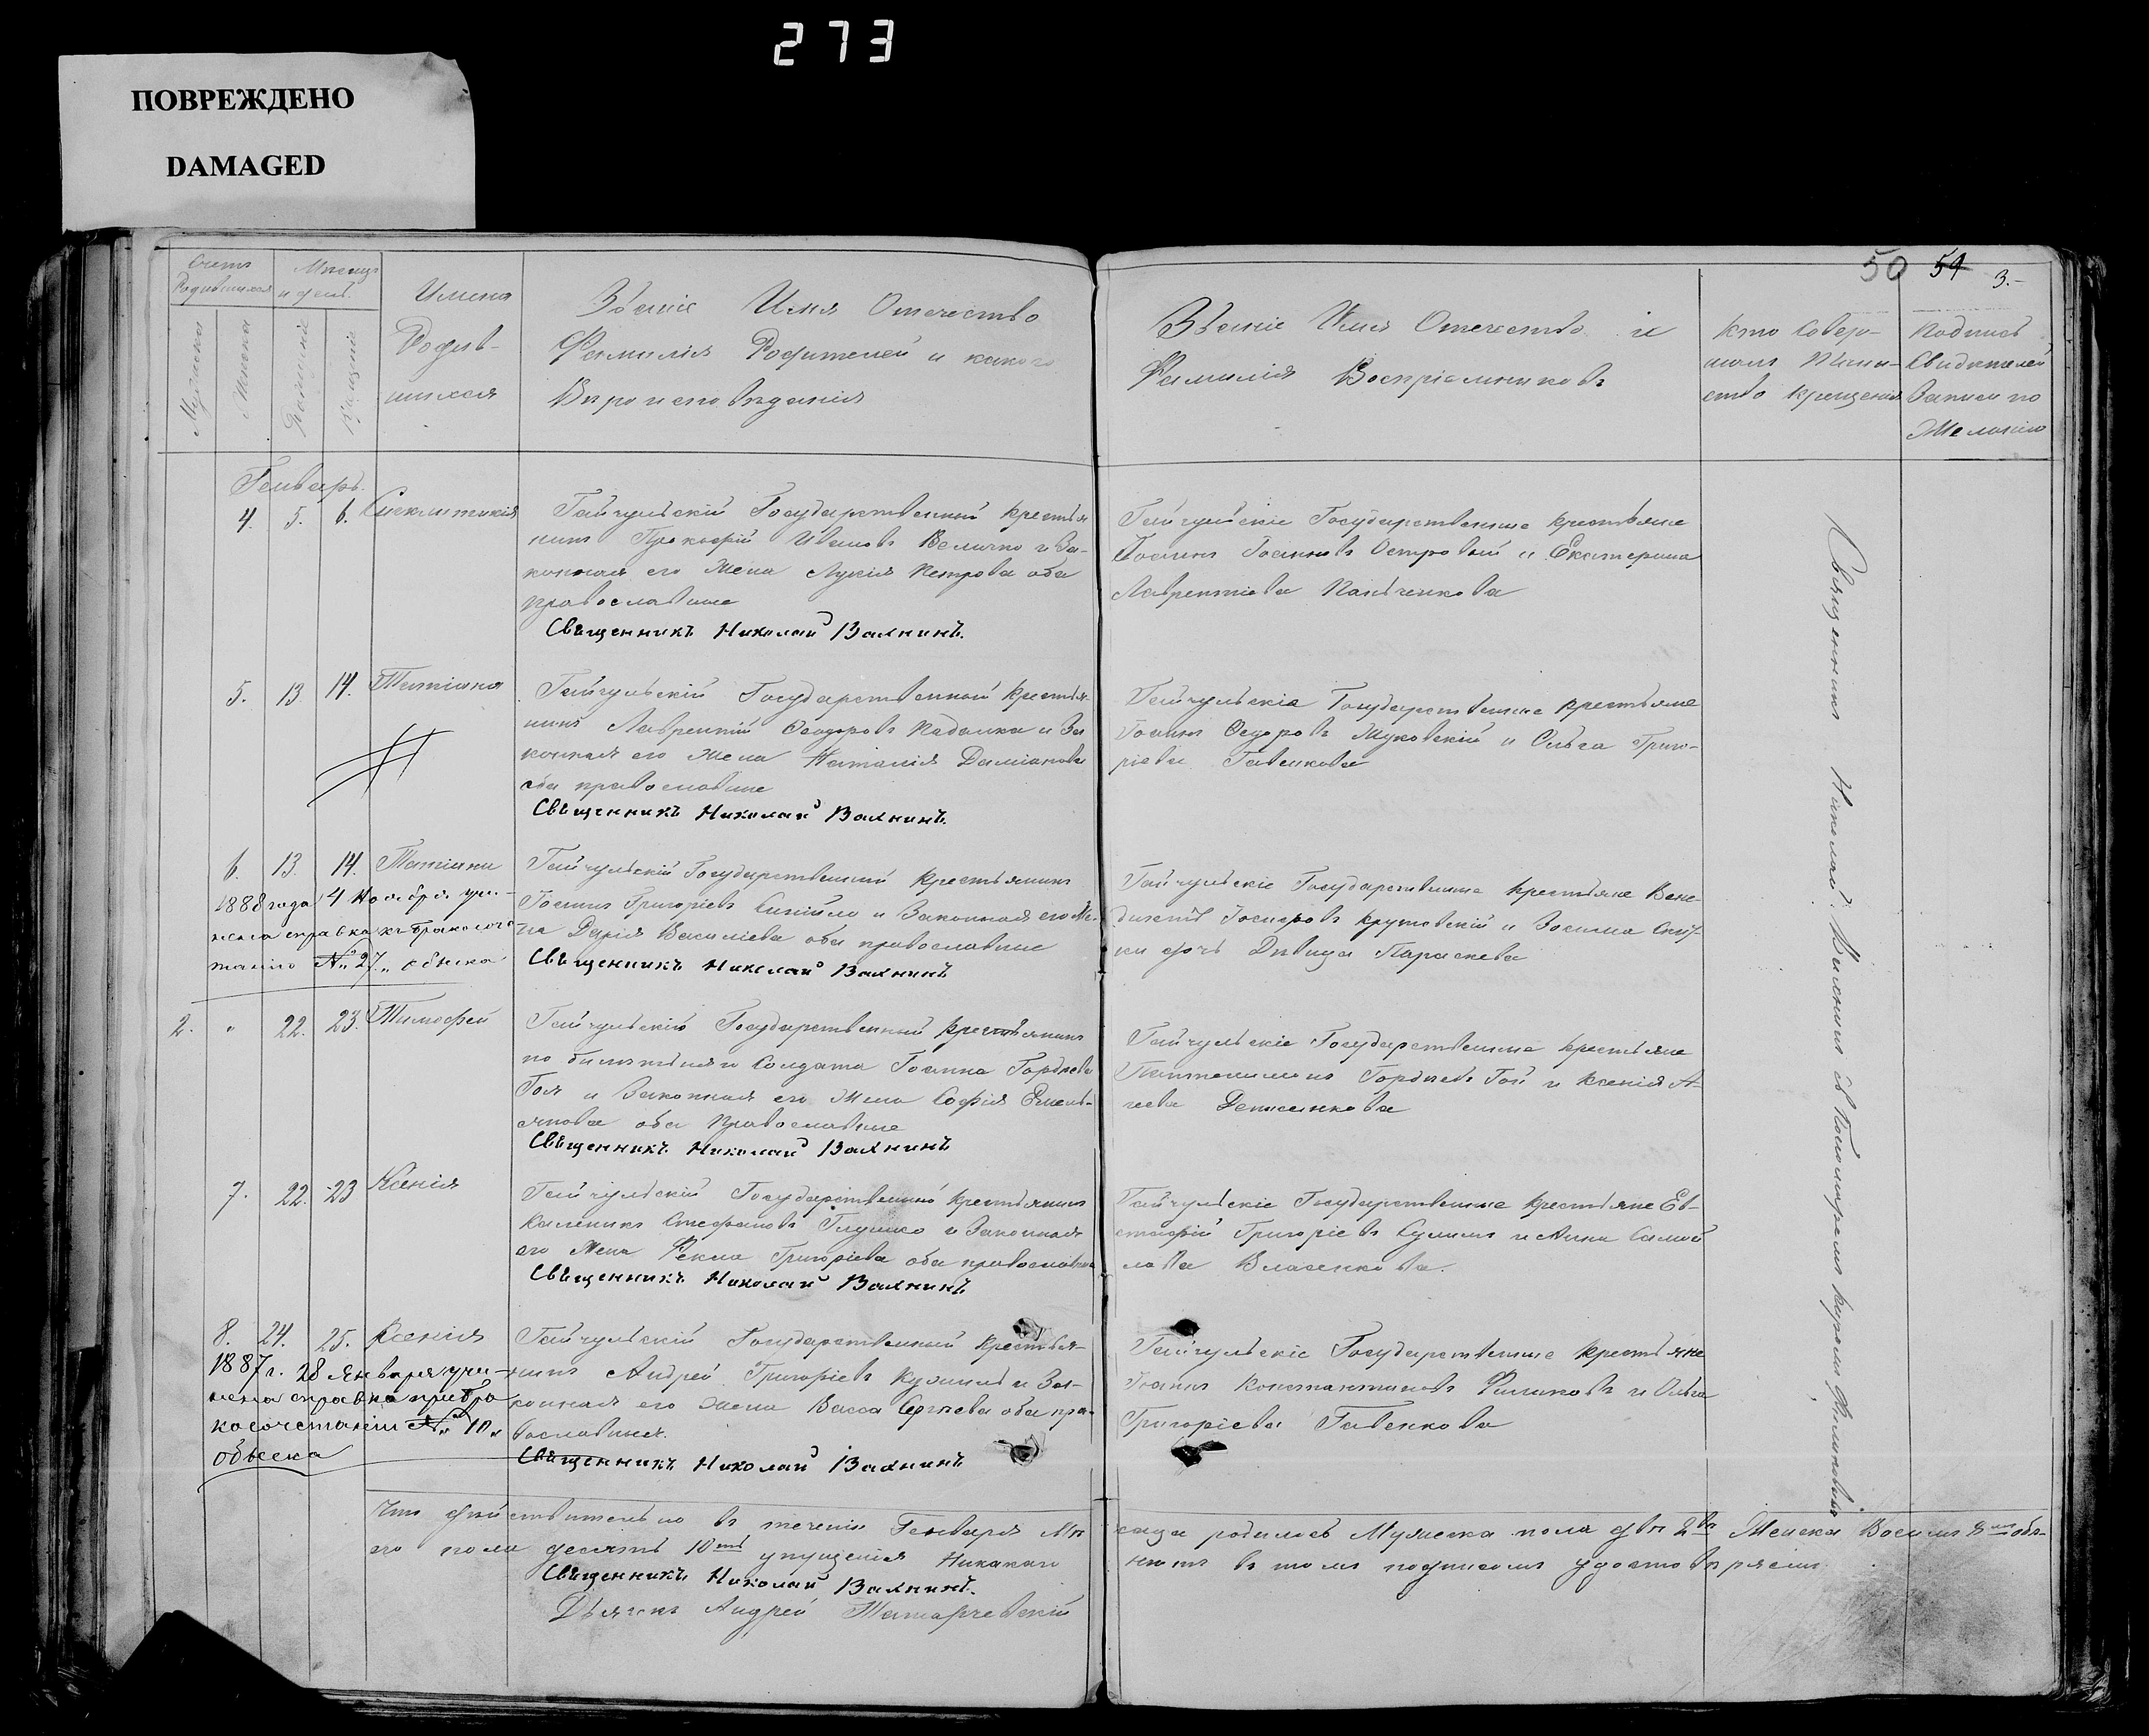 273
ПОВРЕЖДЕНО
DAMAGED
50 54 3.-
Счетъ Родившихся
Мѣсяцъ и день.
Мужеска
Женска
Рожденія
Крещенія
Имена
Родив-
шихся
Званіе Имя Отечество
Фамилія Родителей и какого
Вѣроисповѣданія
Званіе Имя Отечество и
Фамилія Воспріемниковъ
Кто Совер-
шалъ Таин-
ство Крещенія
Подпись
Свидѣтелей
Записи по
Желанію
Генварь.
4. 5. 6. Синклитикія
Гайчульскій Государственный крестья
нинъ Прокофій Ивановъ Величко и За-
конная его Жена Лукія Петрова оба
православные
Священникъ Николай Валнинъ.
Гайчульскіе Государственные крестьяне
Іоаннъ Іоанновъ Островый и Екатерина
Лаврентіева Панченкова
5. 13. 14. Татіана
Гайчульскій Государственный крестья-
нинъ Лаврентій Ѳеодоровъ Кадалка и За
конная его Жена Наталія Даміанова
оба православные
Священникъ Николай Валнинъ.
Гайчульскіе Государственные крестьяне
Іоаннъ Ѳедоровъ Жуковскій и Ольга Григо-
ріева Гавенкова
6. 13. 14. Татіана
1888 года 14 Ноября учи-
нена справка къ бракосоче
танію № 27 „ обыска
Гайчульскій Государственный крестьянинъ
Іоаннъ Григоріевъ и Законная его Же-
на Дарія Василіева оба православные
Священникъ Николай Валнинъ
Гайчульскіе Государственные крестьяне Вене-
диктъ Іосифовъ Крутовскій и Зосима
дочь Дѣвица Параскева
2. „ 22. 23. Тимофей
Гайчульскій Государственный крестьянинъ
по билетный Солдатъ Іоаннъ Гордѣевъ
Гоя и Законная его Жена Софія Емель-
янова оба Православные
Священникъ Николай Валнинъ
Гайчульскіе Государственные крестьяне
Пантелимонъ Гордѣевъ Гой и Ксенія А-
геева Денисенкова
7. 22. 23 Ксенія
Гайчульскій Государственный крестьянинъ
Калиникъ Стефановъ Глушко и Законная
его Жена Ѳекла Григоріева оба православные
Священникъ Николай Валнинъ
Гайчульскіе Государственные крестьяне Ев-
стафій Григоріевъ Сулима и Анна Самой
лова Власенкова.
8. 24. 25. Ксенія
1887 г. 28 Января учи-
нена справка при бра
косочетаніи № 10„
обыска
Гайчульскій Государственный крестья-
нинъ Андрей Григоріевъ и За-
конная его Жена Васса Сергѣева оба пра-
вославные.
Священникъ Николай Валнинъ
Гайчульскіе Государственные крестьяне
Іоаннъ Константиновъ Филиповъ и Ольга
Григоріева Гавенкова
Священникъ Николай Валнинъ съ Пономаремъ
Что дѣйствительно въ теченіи Генваря Мѣ сяца родилось Мужеска пола два 2ва Женска Восемь 8мь обо-
его пола десять 10ть упущенія Никакаго нѣтъ въ томъ подписомъ удостовѣряемъ
Священникъ Николай Валнинъ.
Дьячекъ Андрей Татарчевскій